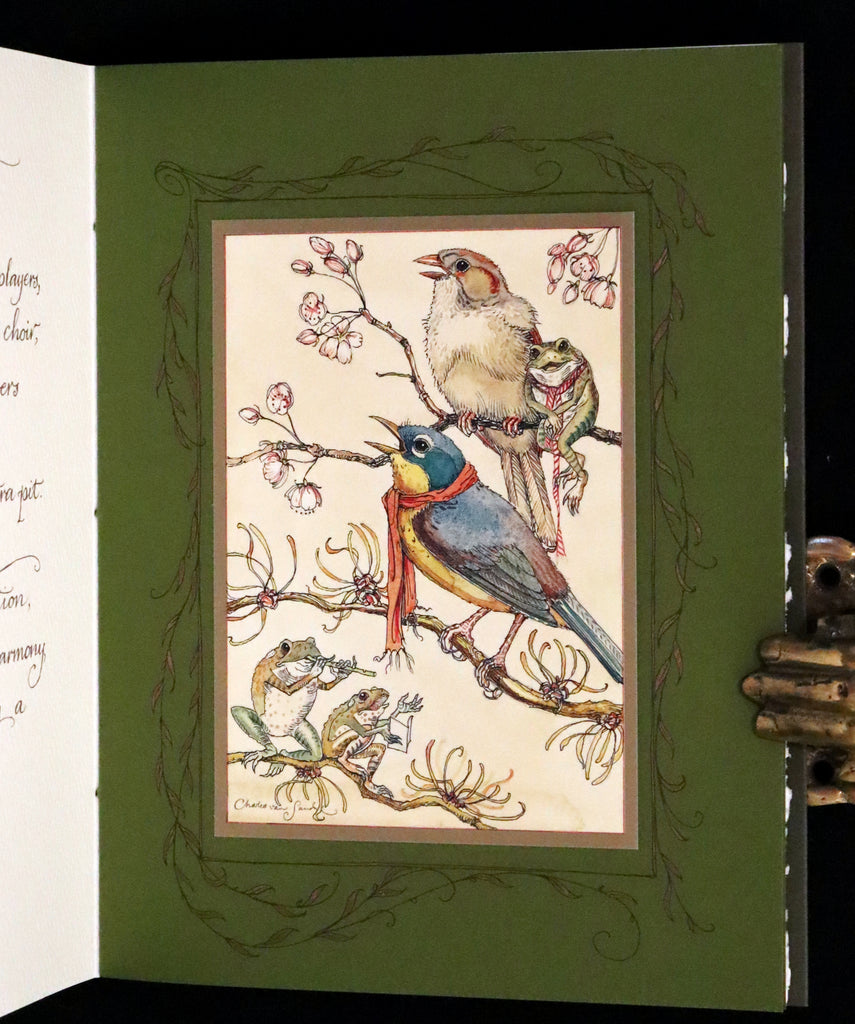 players,
choir,
ers
ra pit.
ion,
armony
a
Charles van Sandwyk